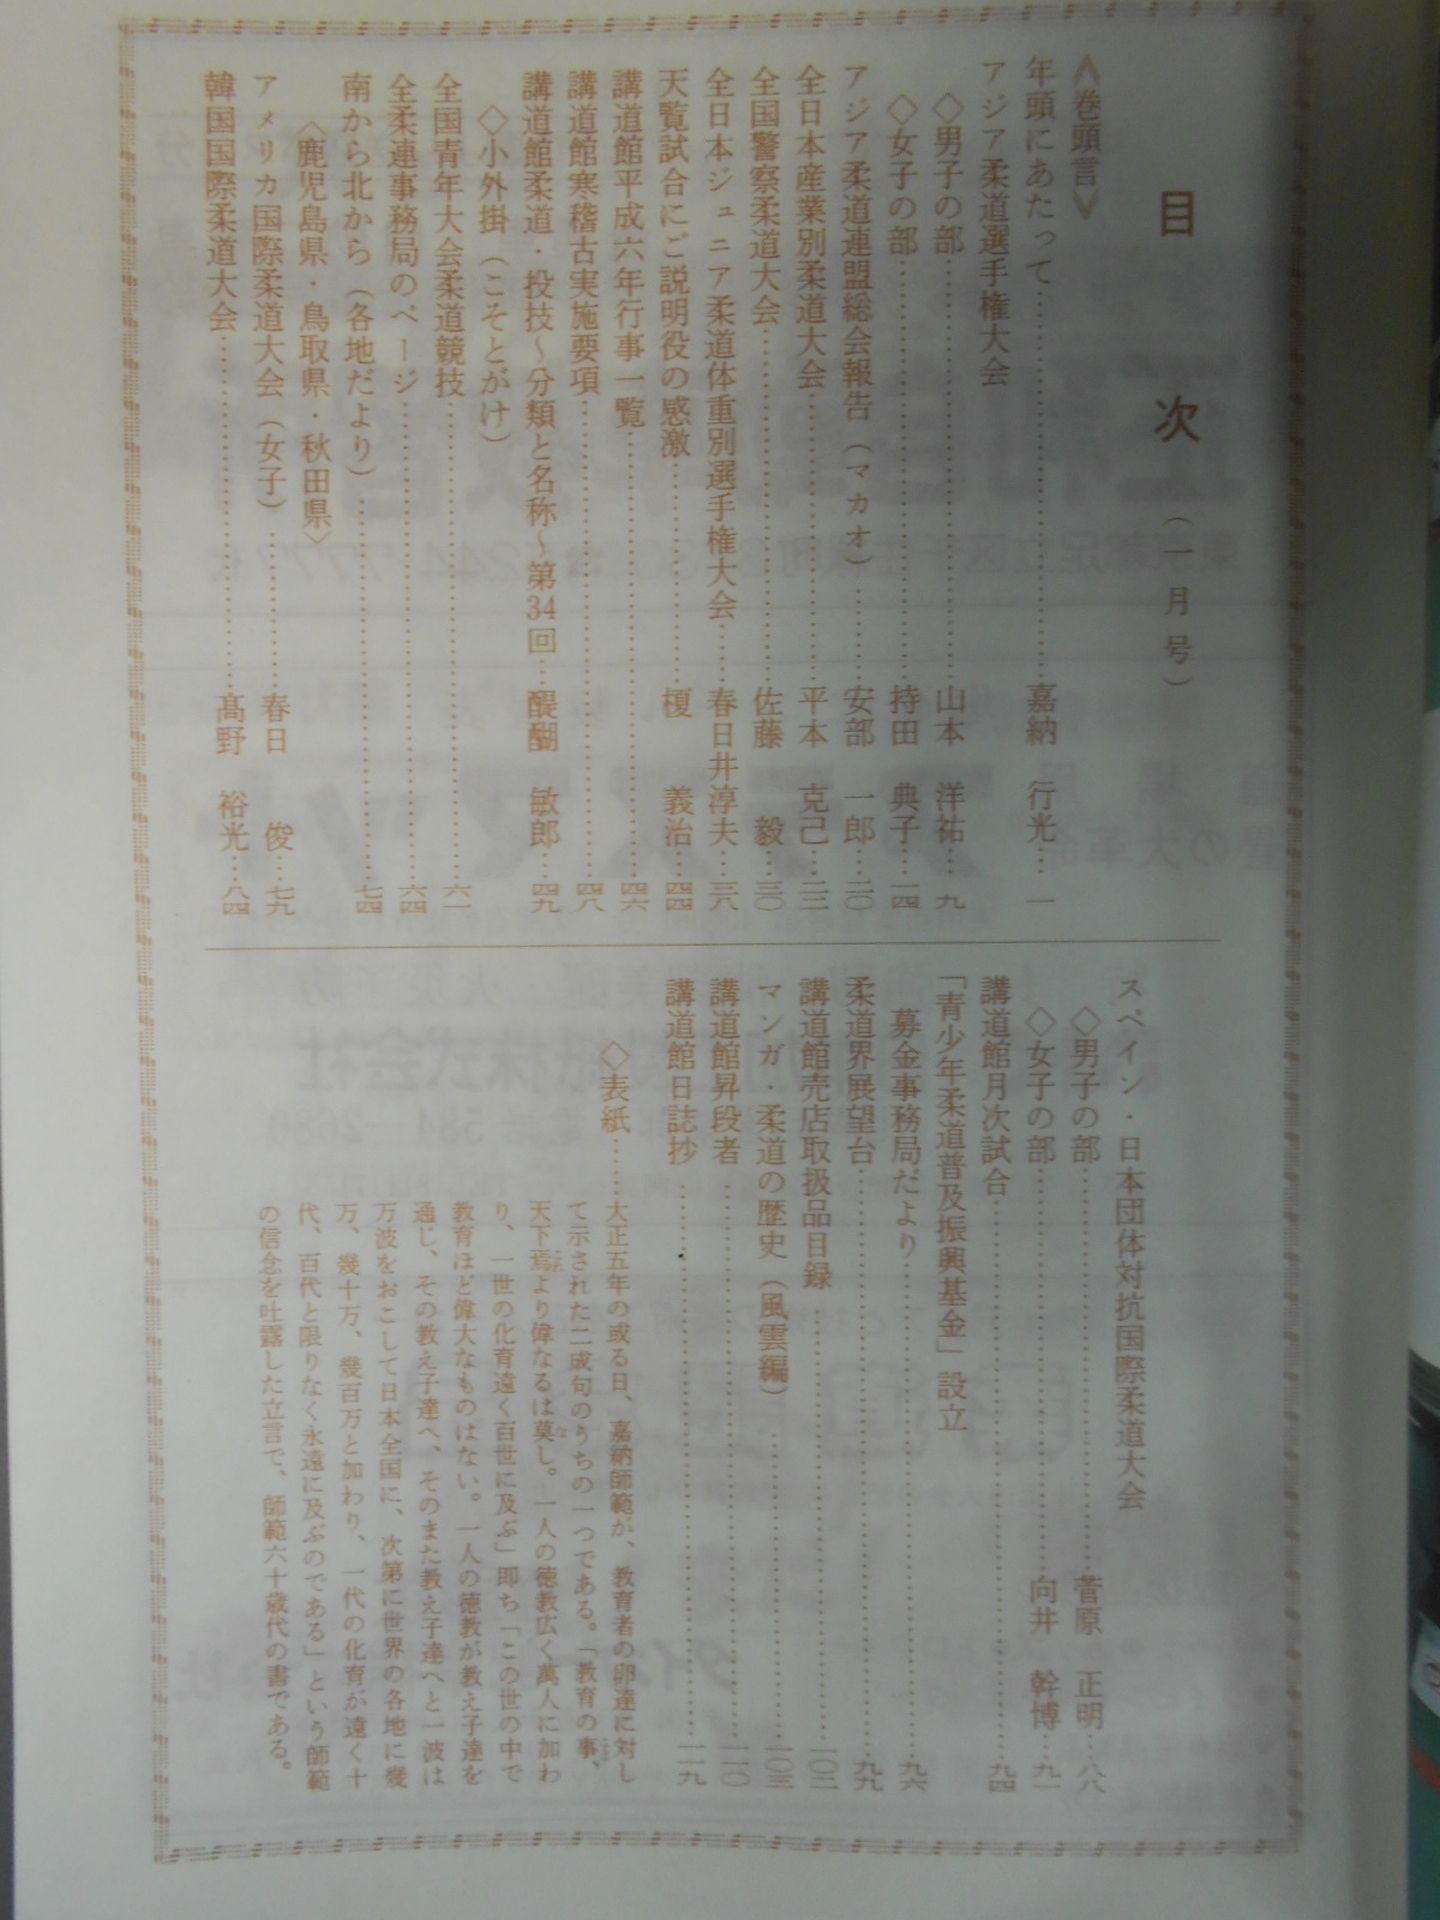 目次（一月号）
≪巻頭言≫
年頭にあたって……嘉納 行光…一
アジア柔道選手権大会
◇男子の部……山本 洋祐…九
◇女子の部……持田 典子…一四
アジア柔道連盟総会報告（マカオ）……安部 一郎…二〇
全日本産業別柔道大会……平本 克己…二二
全国警察柔道大会……佐藤 毅…三〇
全日本ジュニア柔道体重別選手権大会……春日井淳夫…三八
天覧試合にご説明役の感激……榎 義治…四四
講道館平成六年行事一覧……四六
講道館寒稽古実施要項……四八
講道館柔道・投技～分類と名称～第34回…醍醐 敏郎…四九
◇小外掛（こそとがけ）
全国青年大会柔道競技……六一
全柔連事務局のページ……六四
南から北から（各地だより）……七四
〈鹿児島県・鳥取県・秋田県〉
アメリカ国際柔道大会（女子）……春日 俊…七九
韓国国際柔道大会……髙野 裕光…八四
スペイン・日本団体対抗国際柔道大会
◇男子の部……菅原 正明…八八
◇女子の部……向井 幹博…九一
講道館月次試合……九四
「青少年柔道普及振興基金」設立
募金事務局だより……九六
柔道界展望台……九九
講道館売店取扱品目録……一〇二
マンガ・柔道の歴史（風雲編）……一〇三
講道館昇段者……一一〇
講道館日誌抄……一一九
◇表紙……大正五年の或る日、嘉納師範が、教育者の卵達に対し
て示された二成句のうちの一つである。「教育の事、
天下焉より偉なるは莫し。一人の徳教広く萬人に加わ
り、一世の化育遠く百世に及ぶ」即ち「この世の中で
教育ほど偉大なものはない。一人の徳教が教え子達を
通し、その教え子達へ、そのまた教え子達へと一波は
万波をおこして日本全国に、次第に世界の各地に幾
万、幾十万、幾百万と加わり、一代の化育が遠く十
代、百代と限りなく永遠に及ぶのである」という師範
の信念を吐露した立言で、師範六十歳代の書である。